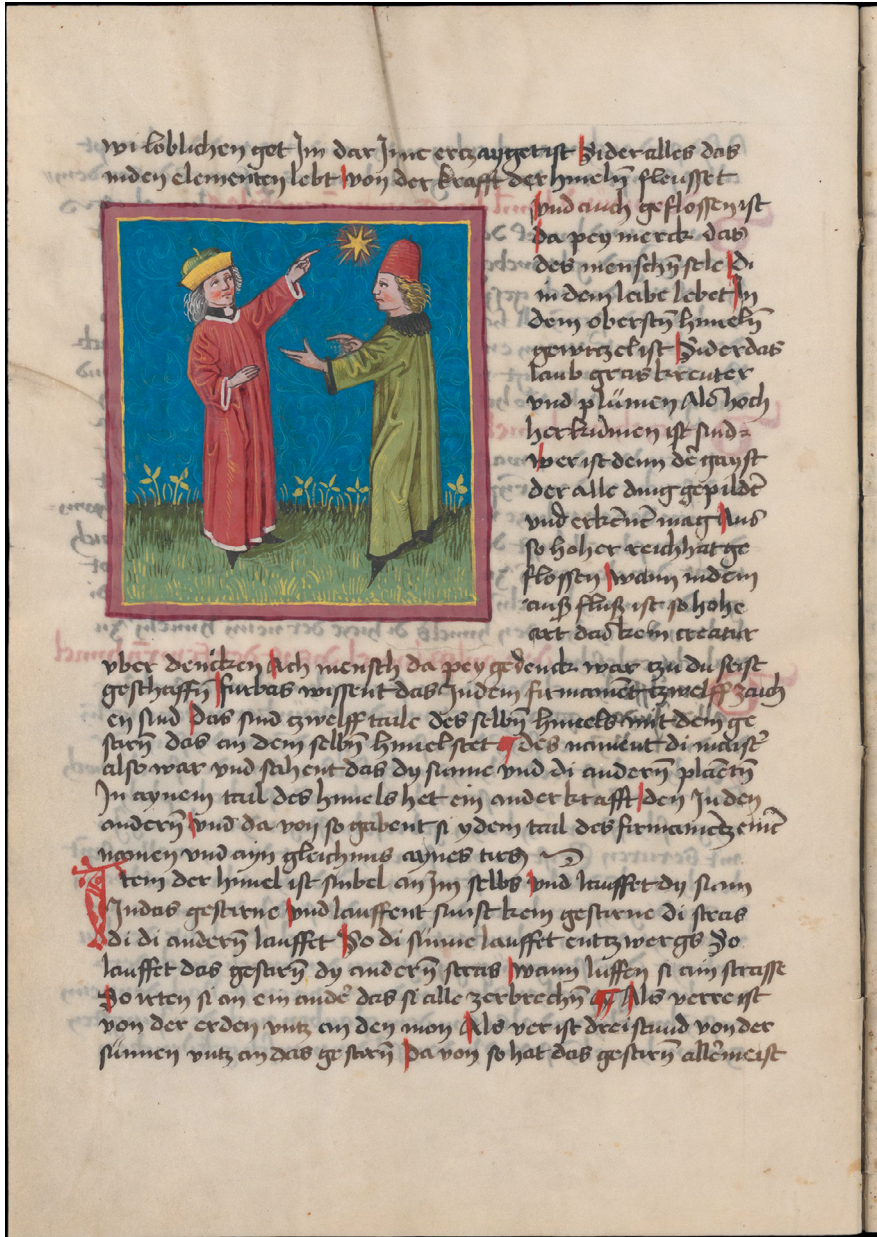 wi loblichen got Im dar Inne ertzayget ist Sider alles das
in den elementen lebt von der krafft der himeln̄ fleusset
vnd auch geflossen ist
da pey merck das
des menschn̄ sele di
in dem leibe lebet In
dem oberstn̄ himeln̄
gewrtzel ist Sider das
laub gras kreuter
vnd plümen Als hoch
her kumen ist sind
wer ist denn der gayst
der alle ding gepilden̄
vnd erkēnē mag Aus
so hoher reich hat ge
flossen wann in dem
ausz flusz ist so hohe
art das kein creatur
vber dencken Ach mensch da pey gedenck war tzu du seist
geschaffn̄ furbas wissent das In dem firmament tzwelff zaich
en sind das sind tzwelff taile des selbn̄ himels mit dem ge
starn̄ das an dem selbn̄ himel stet des nament di maister
also war vnd sahent das dy sunne vnd di andern̄ planetn̄
In aynem tail des himels het ein ander krafft den In den
andern̄ vnd da von so gabent si ydem tail des firmamentz einē
namen vnd ayn gleichnus aynes tirs
Item der himel ist sinbel an Im selbs vnd lauffet dy sunn
In das gestirne vnd lauffent sunst kein gestirne di stras
di di andern̄ lauffet So di sunne lauffet entzwergs So
lauffet das gestirn̄ dy andern̄ stras wann luffen si ain strasse
So irten si an ein ander das si alle zerbrechn̄ Als verre ist
von der erden vntz an den mon Als ver ist drei stund von der
sünnen vntz an das gestirn̄ Da von so hat das gestirn̄ allermeist